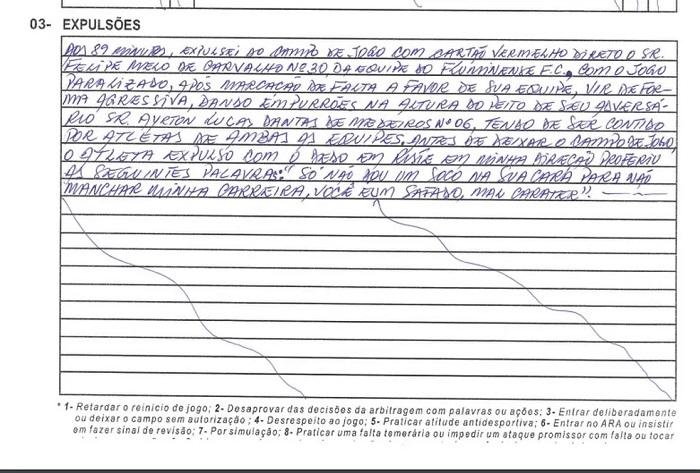 03- EXPULSÕES
AOS 89 MINUTOS, EXPULSEI DO CAMPO DE JOGO COM CARTÃO VERMELHO DIRETO O SR.
FELIPE MELO DE CARVALHO Nº 30, DA EQUIPE DO FLUMINENSE F.C., COM O JOGO
PARALIZADO, APÓS MARCAÇÃO DE FALTA A FAVOR DE SUA EQUIPE, VIR DE FOR-
MA AGRESSIVA, DANDO EMPURRÕES NA ALTURA DO PEITO DE SEU ADVERSÁ-
RIO SR. AYRTON LUCAS DANTAS DE MEDEIROS Nº 06, TENDO DE SER CONTIDO
POR ATLETAS DE AMBAS AS EQUIPES. ANTES DE DEIXAR O CAMPO DE JOGO,
O ATLETA EXPULSO COM O DEDO EM RISTE EM MINHA DIREÇÃO PROFERIU
AS SEGUINTES PALAVRAS: "SÓ NÃO DOU UM SOCO NA SUA CARA PARA NÃO
MANCHAR MINHA CARREIRA, VOCÊ É UM SAFADO, MAU CARATER".
* 1- Retardar o reinício de jogo; 2- Desaprovar das decisões da arbitragem com palavras ou ações; 3- Entrar deliberadamente
ou deixar o campo sem autorização ; 4- Desrespeito ao jogo; 5- Praticar atitude antidesportiva; 6- Entrar no ARA ou insistir
em fazer sinal de revisão; 7- Por simulação; 8- Praticar uma falta temerária ou impedir um ataque promissor com falta ou tocar